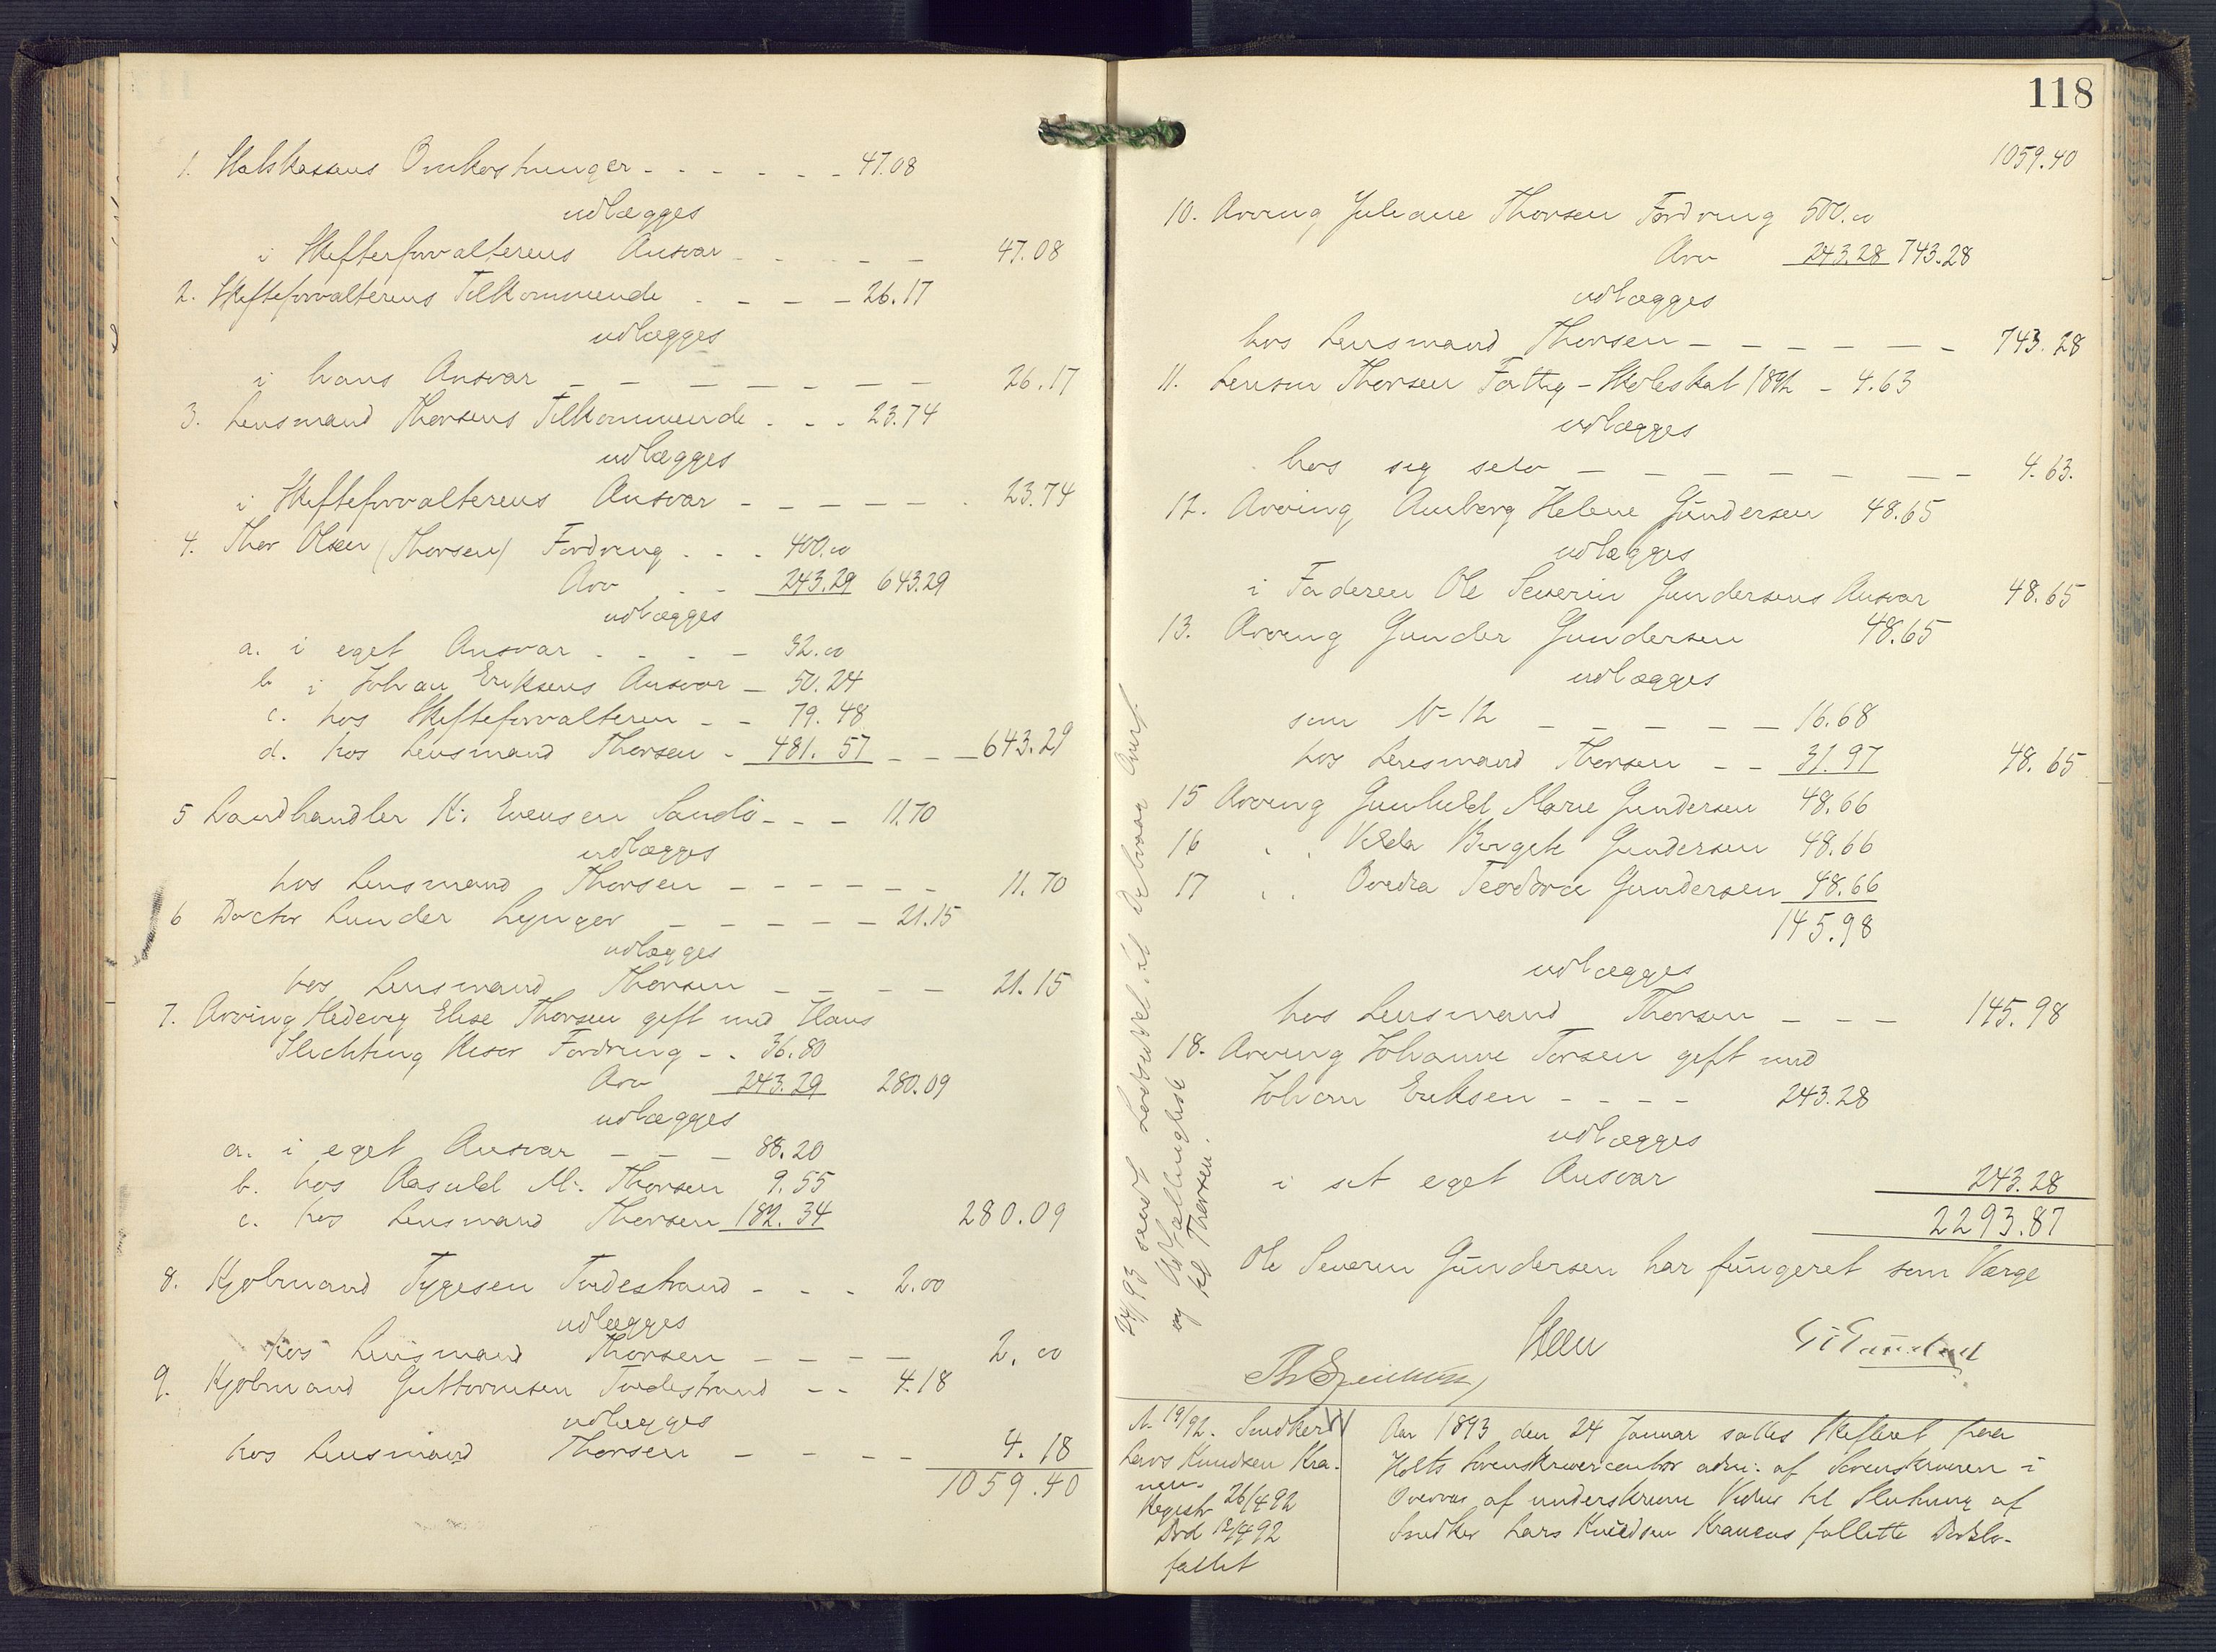 1. Statskassens Omkostninger - - - - - - 47.08
udlægges
i Skifteforvalterens Ansvar - - - - - 47.08
2. Skifteforvalterens Tilkommende - - - - 26.17
udlægges
i hans Ansvar - - - - - - - 26.17
3. Lensmand Thorsens Tilkommende - - - 23.74
udlægges
i Skifteforvalterens Ansvar - - - - - - 23.74
4. Thor Olsen (Thorsen) Fordring - - - 400.00
Arv - - 243.29 643.29
udlægges
a. i eget Ansvar - - - - 32.00
b i Johan Eriksens Ansvar - 50.24
c. hos Skifteforvalteren - - 79.48
d. hos Lensmand Thorsen - 481.57 - - - 643.29
5 Landhandler K: Evensen Sandø - - - 11.70
udlægges
hos Lensmand Thorsen - - - - - - 11.70
6 Doctor Lunder Lyngør - - - - - 21.15
udlægges
hos Lensmand Thorsen - - - - 21.15
7. Arving Hedevig Elise Thorsen gift med Hans
Slichting Risør Fordring - - 36.80
Arv 243.29 280.09
udlægges
a. i eget Ansvar - - - 88.20
b. hos Aasuld M: Thorsen 9.55
c. hos Lensmand Thorsen 182.34 280.09
8. Kjøbmand Tygesen Tvedestrand - - - 2.00
udlægges
hos Lensmand Thorsen - - - - 2.00
9. Kjøbmand Guttormsen Tvedestrand - - 4.18
udlægges
hos Lensmand Thorsen - - - - 4.18
1059.40
118
1059.40
10. Arving Juliane Thorsen Fordring 500.00
Arv 243.28 743.28
udlægges
hos Lensmand Thorsen - - - - - - - 743.28
11. Lensm Thorsen Fattig - Skoleskat 1892 - 4.63
udlægges
hos sig selv - - - - - - - - 4.63.
12. Arving Anberg Helene Gundersen 48.65
udlægges
i Faderen Ole Severin Gundersens Ansvar 48.65
13. Arving Gunder Gundersen 48.65
udlægges
som N- 12 - - - - - - 16.68
hos Lensmand Thorsen - - 31.97 48.65
15 Arving Gunhild Marie Gundersen 48.66
16 " " Valda Birgete Gundersen 48.66
17 " " Ovedia Teodora Gundersen 48.66
145.98
udlægges
hos Lensmand Thorsen - - - 145.98
18. Arving Johanne Torsen gift med
Johan Eriksen - - - - 243.28
udlægges
i sit eget Ansvar 243.28
2293.87
Ole Severin Gundersen har fungeret som Værge
Heen
24/1 93 sendt
og
til Thorsen.
N. 19/92. Snedker
Lars Knudsen Kra-
nen.
Registr 26/4 92
Død 12/4 92
fallit
Aar 1893 den 24 Januar sattes Skifteret paa
Holts Sorenskrivercontor adm: af Sorenskriveren i
Overvær af underskrevne Vidner til Slutning af
Snedker Lars Knudsen Kranens fallitte Dødsbo-